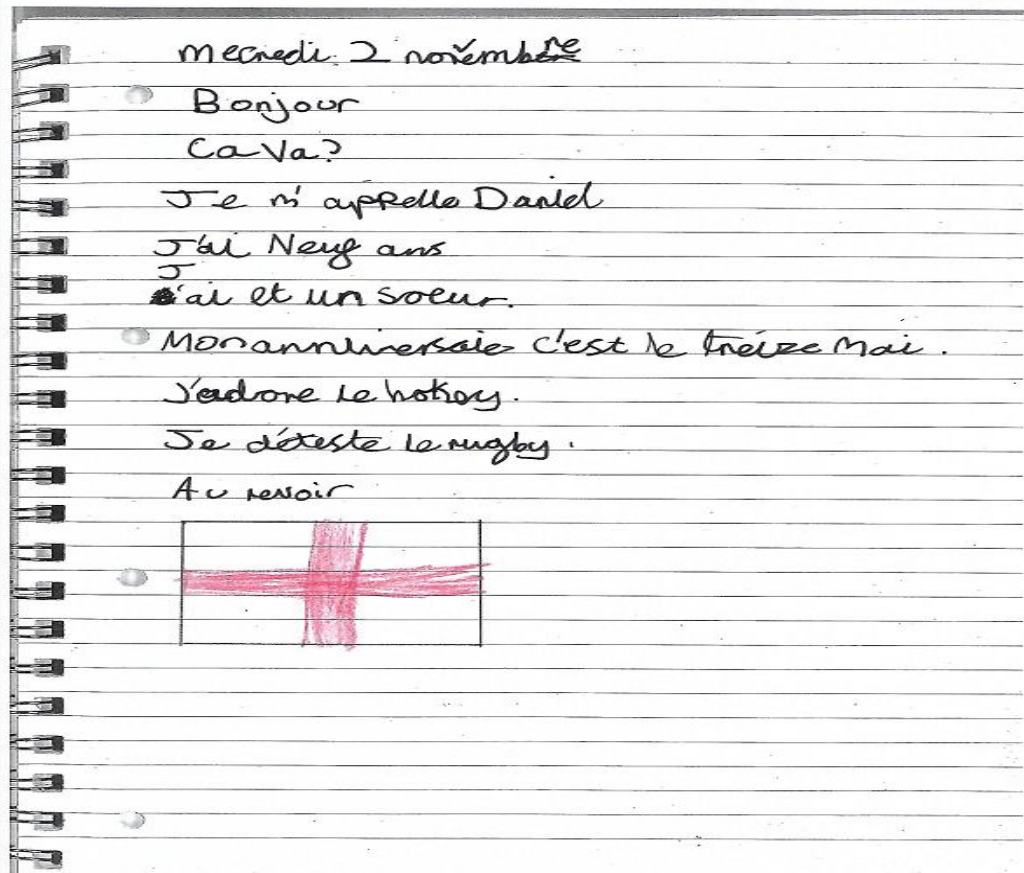 Mecredi 2 novembre
Bonjour
Ca Va?
Je m'appelle Daniel
J'ai Neuf ans
J'ai et un soeur.
Mon anniversaie c'est le treize Mai.
J'adore le hokey.
Je déteste le rugby.
Au revoir